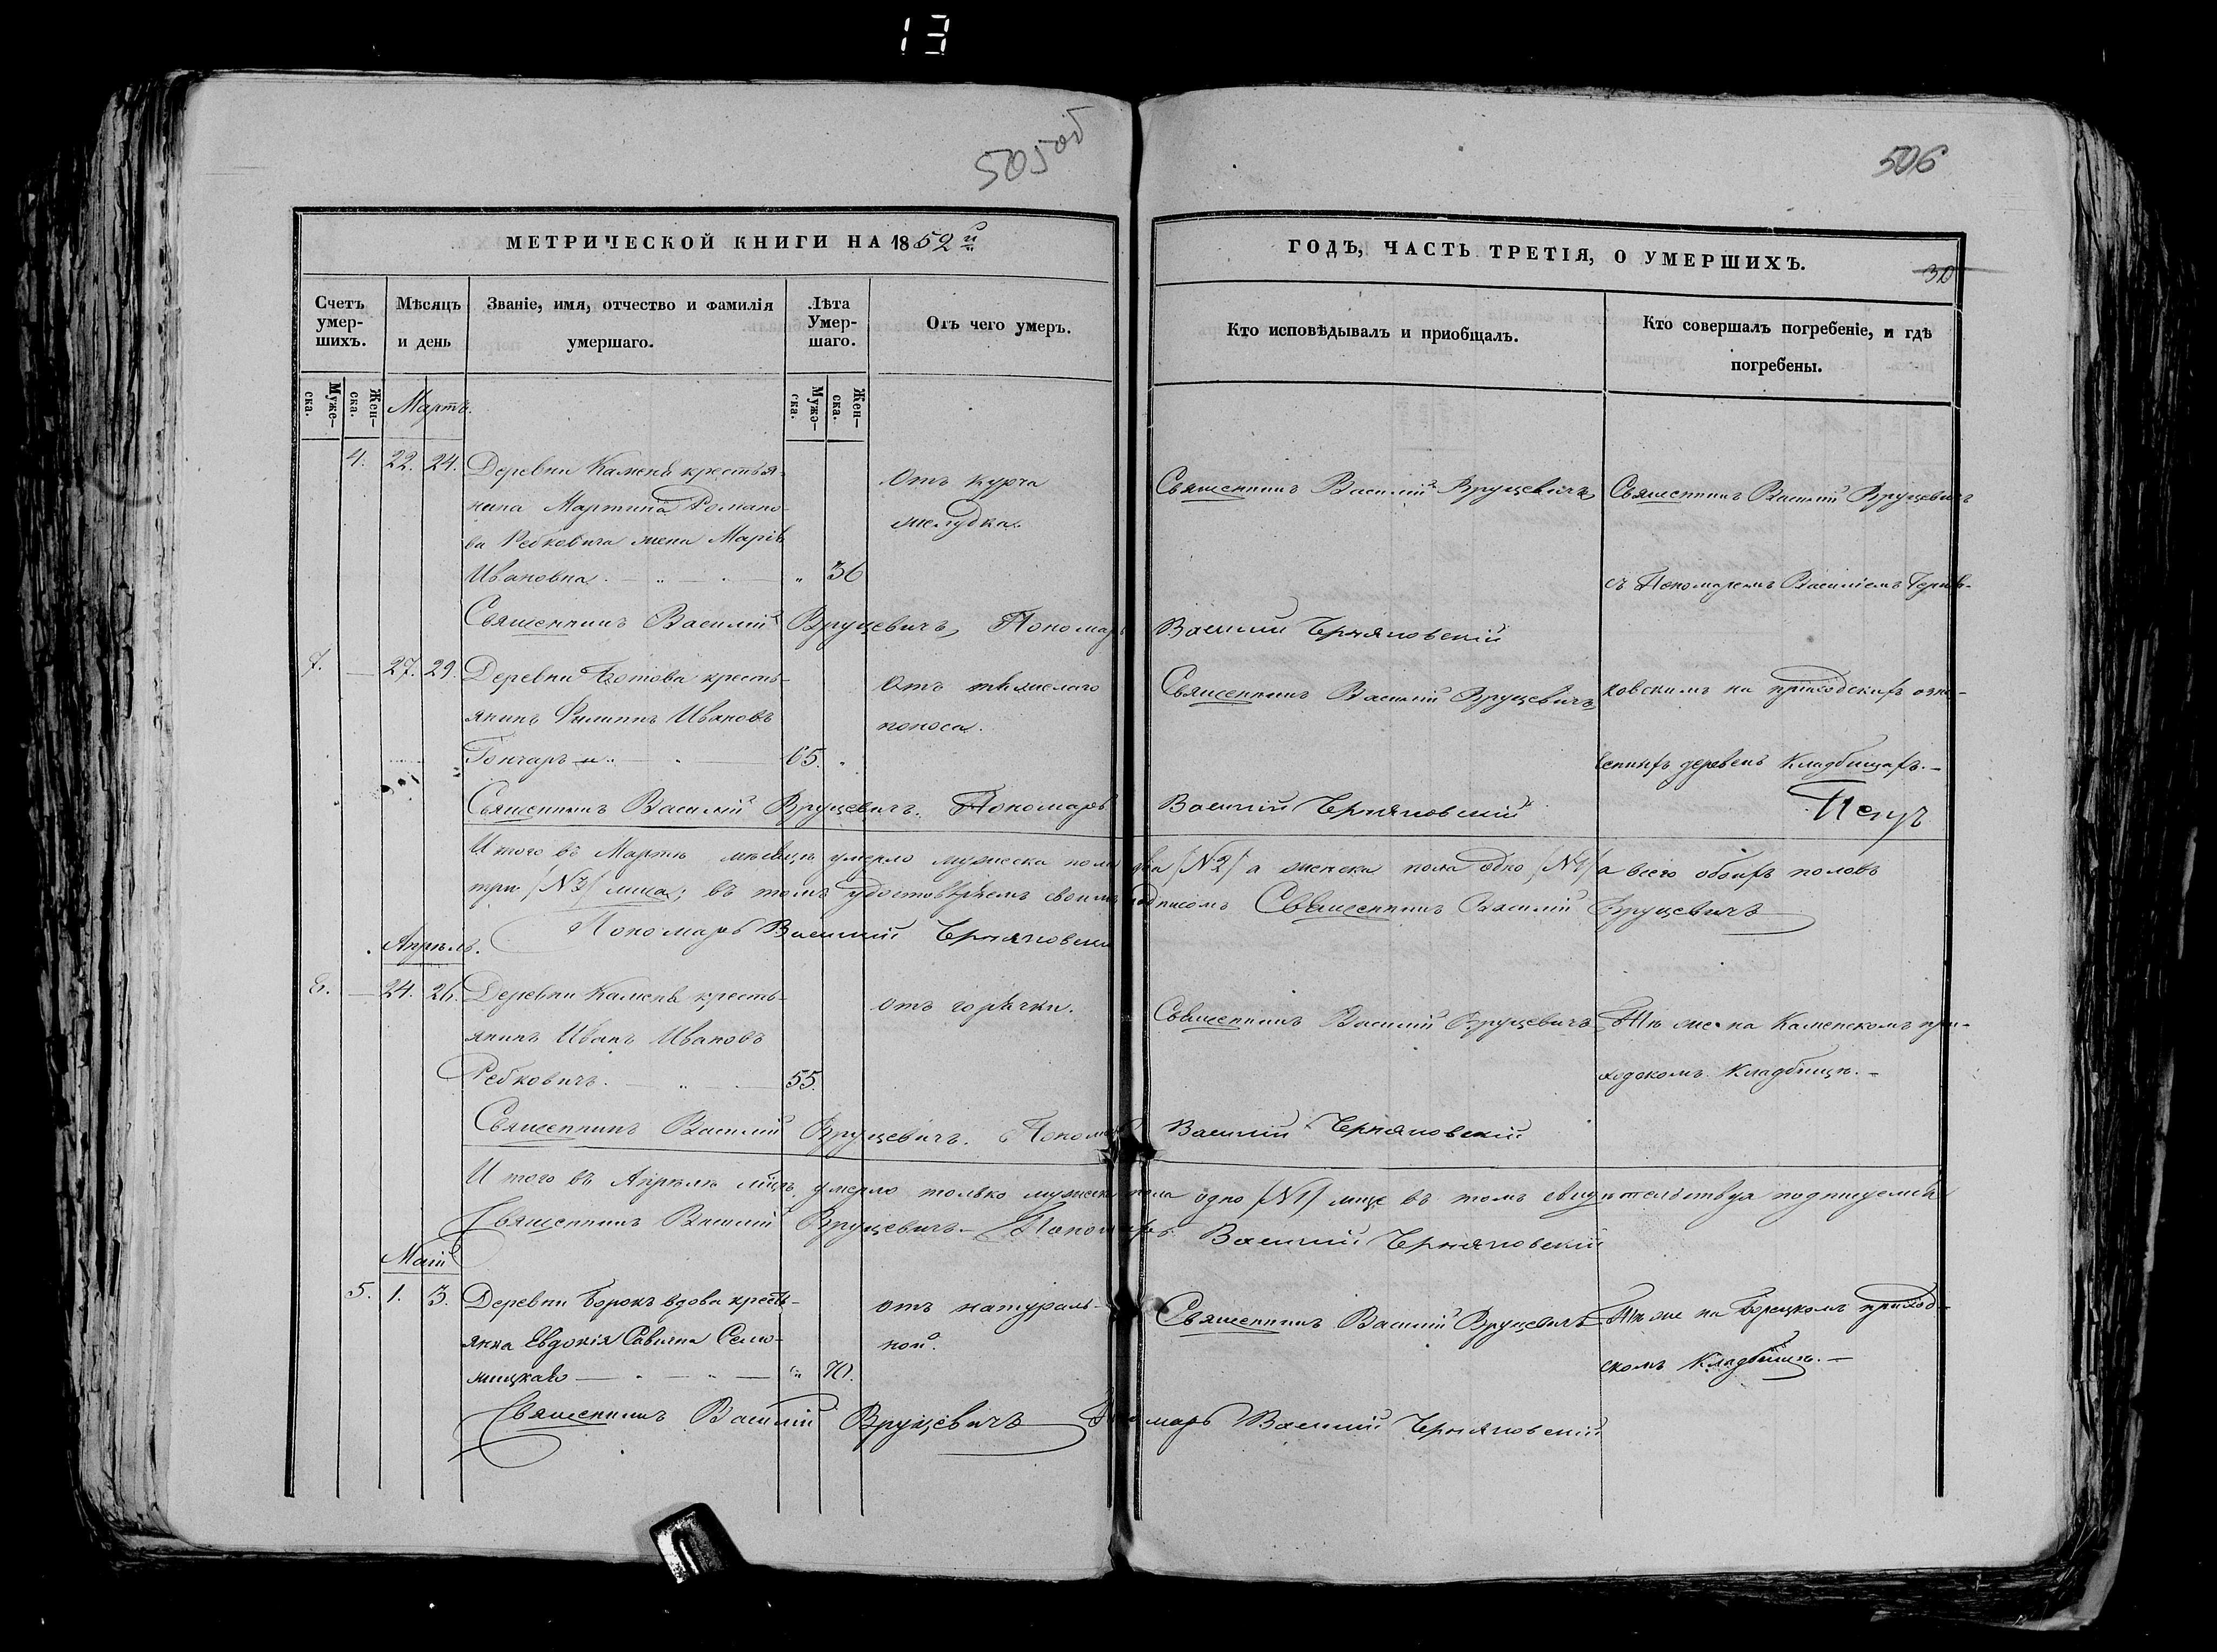 13
505 об
506
МЕТРИЧЕСКОЙ КНИГИ НА 1852 й
ГОДЪ, ЧАСТЬ ТРЕТІЯ, О УМЕРШИХЪ.
30
Счетъ умер-шихъ.
Мѣсяцъ и день
Званіе, имя, отчество и фамилія умершаго.
Лѣта Умер-шаго.
Отъ чего умеръ.
Кто исповѣдывалъ и приобщалъ.
Кто совершалъ погребеніе, и гдѣ погребены.
Муже-ска.
Жен-ска.
Муже-ска.
Жен-ска.
Мартъ.
4. 22. 24. Деревни Камень крестья-
нина Мартина Романо-
ва Ребковича жена Марія
Ивановна. 36
Отъ курча
желудка.
Священникъ Василій Вруцевичъ
Священникъ Василій Вруцевичъ
съ Пономаремъ Василіемъ Черня-
Священникъ Василій Вруцевичъ, Пономарь Василий Черняковскій
7. 27. 29. Деревни Ботова кресть-
янинъ Филиппъ Ивановъ
Гончаръ 65.
Отъ тяжелаго
поноса.
Священникъ Василій Вруцевичъ
ковскимъ на приходскихъ озна-
ченныхъ деревень Кладбищахъ.
Священникъ Василій Вруцевичъ. Пономарь Василій Черняковскій
Итого въ Мартѣ мѣсяцѣ умерло мужеска пола два /№2/ а женска пола одно /№1/ а всего обоихъ половъ
три /№3/ лица; въ томъ удостовѣряемъ своимъ подписомъ Священникъ Василій Вруцевичъ
Пономарь Василий Черняковскій
Апрѣль.
8. 24. 26. Деревни Камень кресть-
янинъ Иванъ Ивановъ
Ребковичъ. 55.
отъ горячки.
Священникъ Василій Вруцевичъ
Тѣ же на Каменскомъ при-
ходскомъ Кладбищѣ.
Священникъ Василій Вруцевичъ. Пономарь Василий Черняковскій
Итого въ Апрѣлѣ мцѣ умерло только мужеска пола одно /№1/ лице въ томъ свидѣтельствуя подписуемся
Священникъ Василій Вруцевичъ. Пономарь Василий Черняковскій
Маій
5. 1. 3. Деревни Борокъ вдова кресть-
янка Евдокія Савина Село-
мицкаго 70.
отъ натураль-
ной.
Священникъ Василій Вруцевичъ
Тѣ же на Борецкомъ приход-
скомъ Кладбищѣ.
Священникъ Василій Вруцевичъ Пономарь Василий Черняковскій